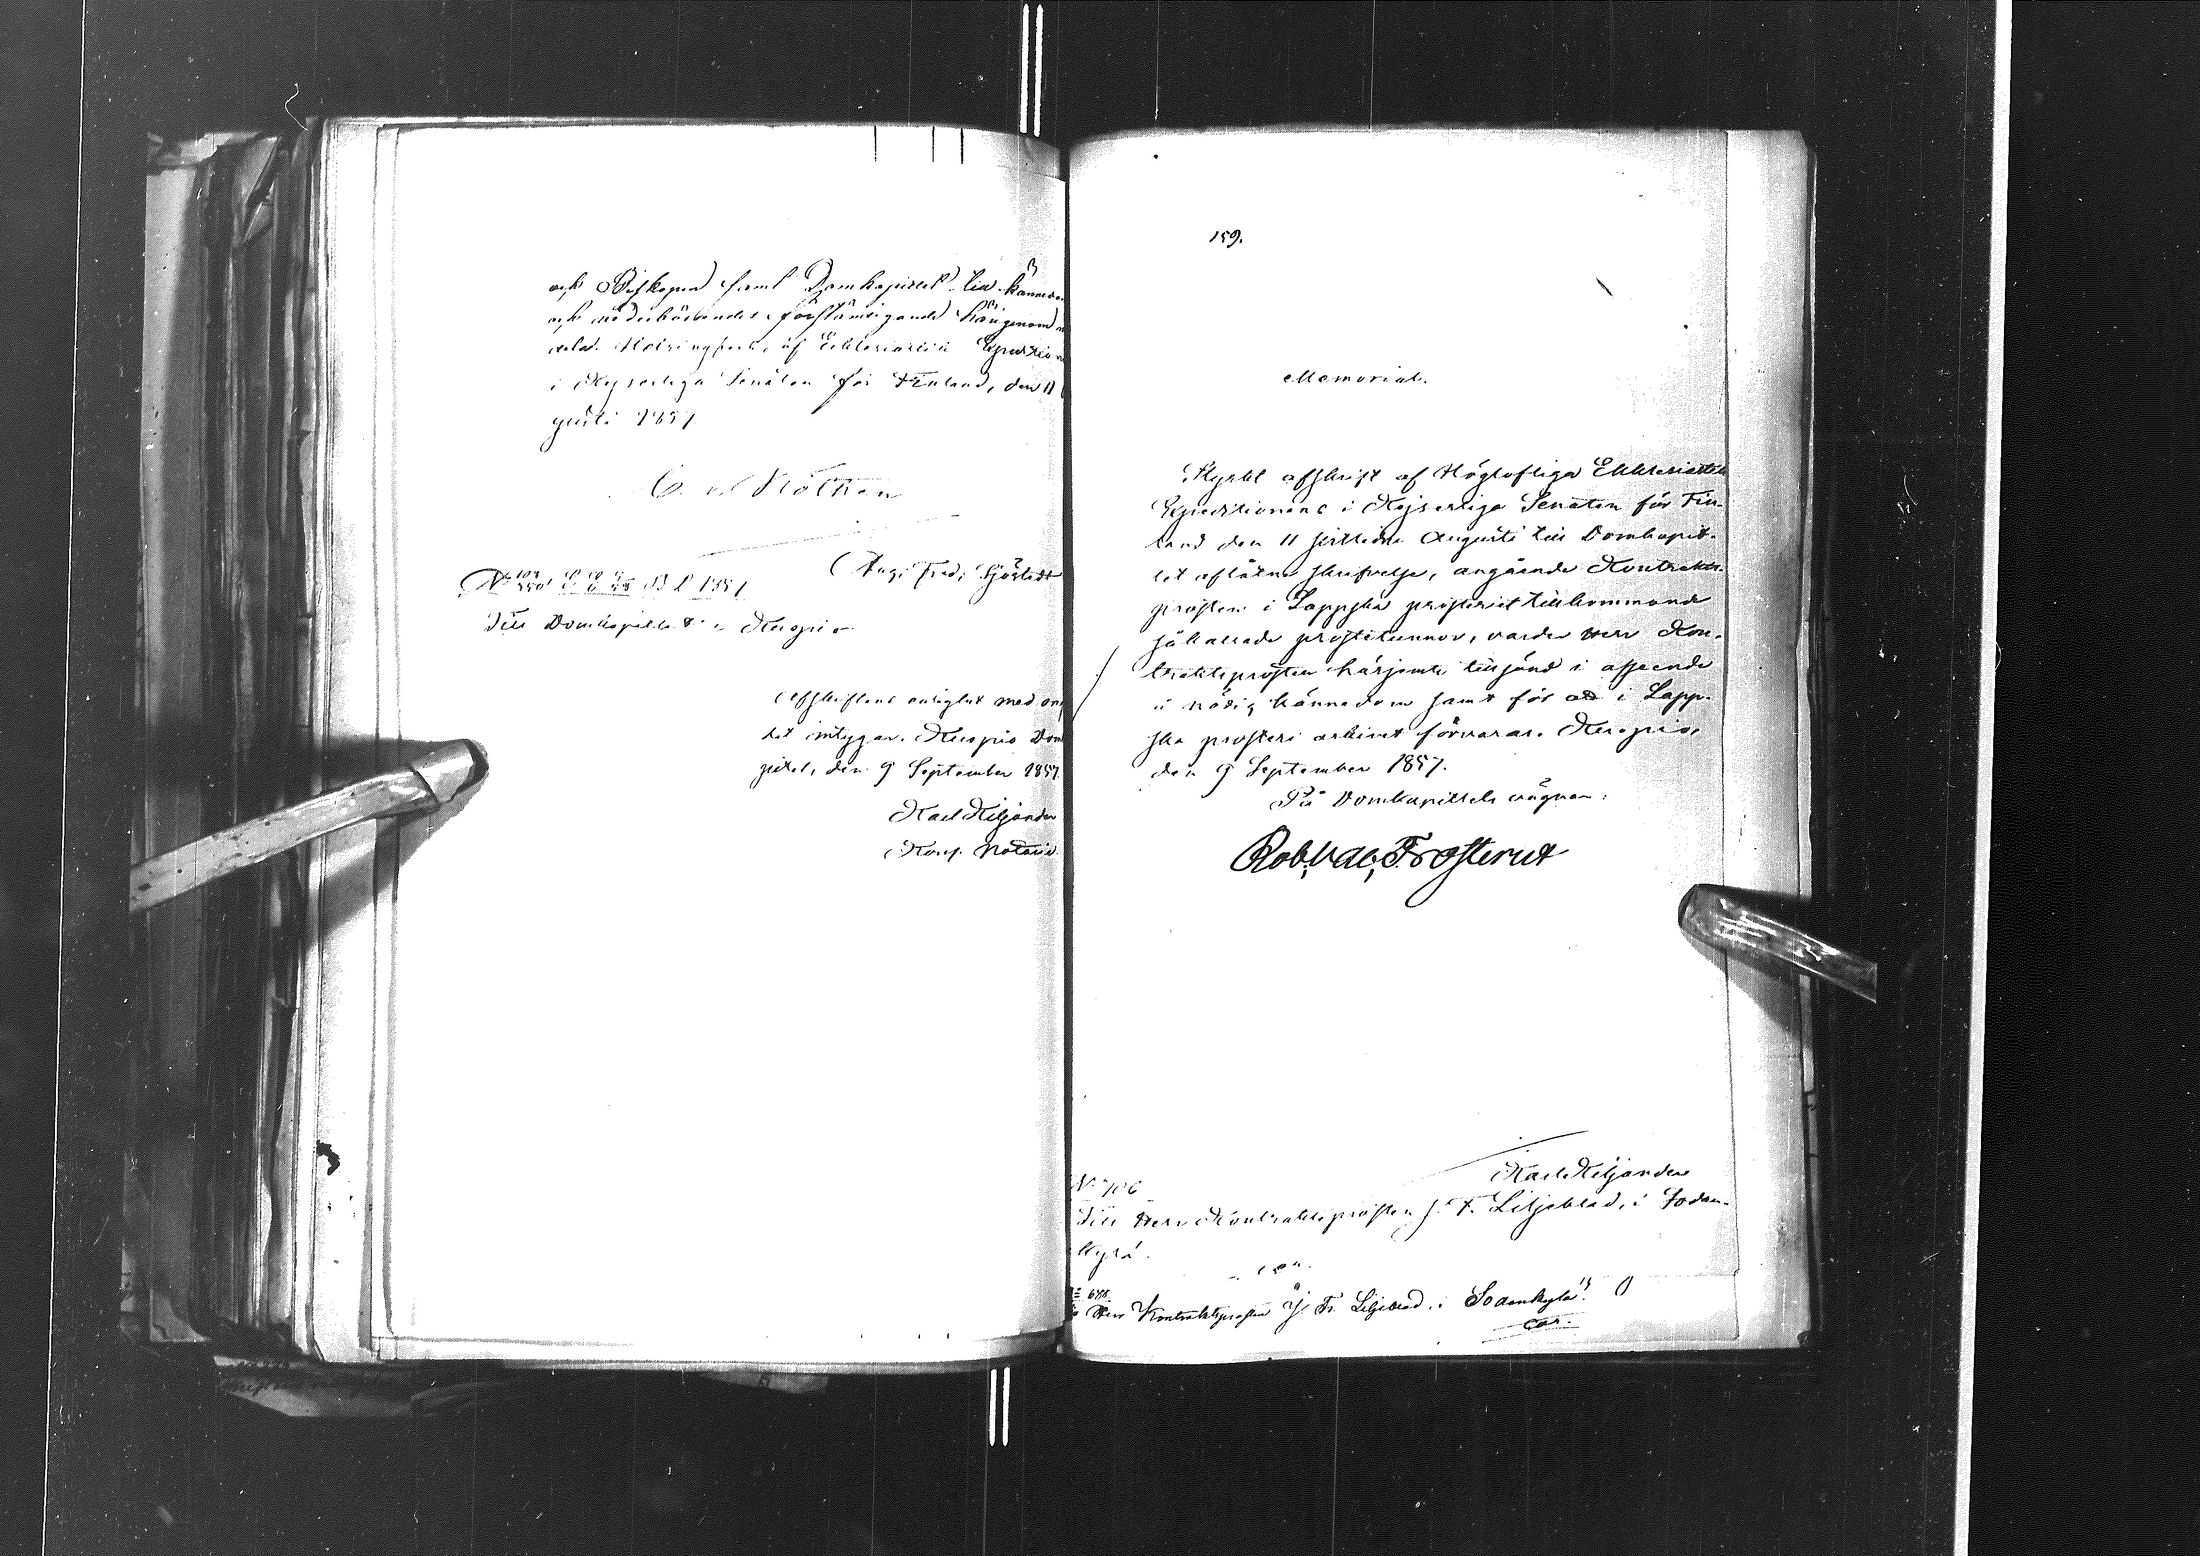 och Biskopen samt Domkapitel till känne
och vederbörandes förständigande härigenom
meddela. Helsingfors, af Ecklesiastik Expeditio
i Kejserliga Senaten för Finland, den 11
gusti 1857
C. v Kothen
Aug: Fred: Sjöstedt
Till Domkapitlet i Kuopio
Afskriftens enlighet med
det intygar. Kuopio Dom
pitel, den 9 September 1857.
Karl Kiljander
Kons. Notarie
159.
Memorial.
Styrkt afskrift af Höglofliga Ekklesiastik
Expeditionens i Kejserliga Senaten för Fin-
land den 11 sistledne Augusti till Domkapit-
let aflåtna skrifvelse, angående Kontrakts-
prosten i Lappska prosteriet tillkommande
såkallade prosttunnor, varder Herr Kon-
traktsprosten härjemte tillsänd i afseende
å nödig kännedom samt för att i Lapp-
ska prosteri arkivet förvaras. Kuopio,
den 9 September 1857.
På Domkapitlets vägnar:
Rob: Val: Frosterus
Karl Kiljander
N:o 706
Till Herr Kontraktsprosten J. F. Liljeblad, i Sodan-
kylä.
688.
Herr Kontraktsprosten J. Fr. Liljeblad, i Sodankylä.